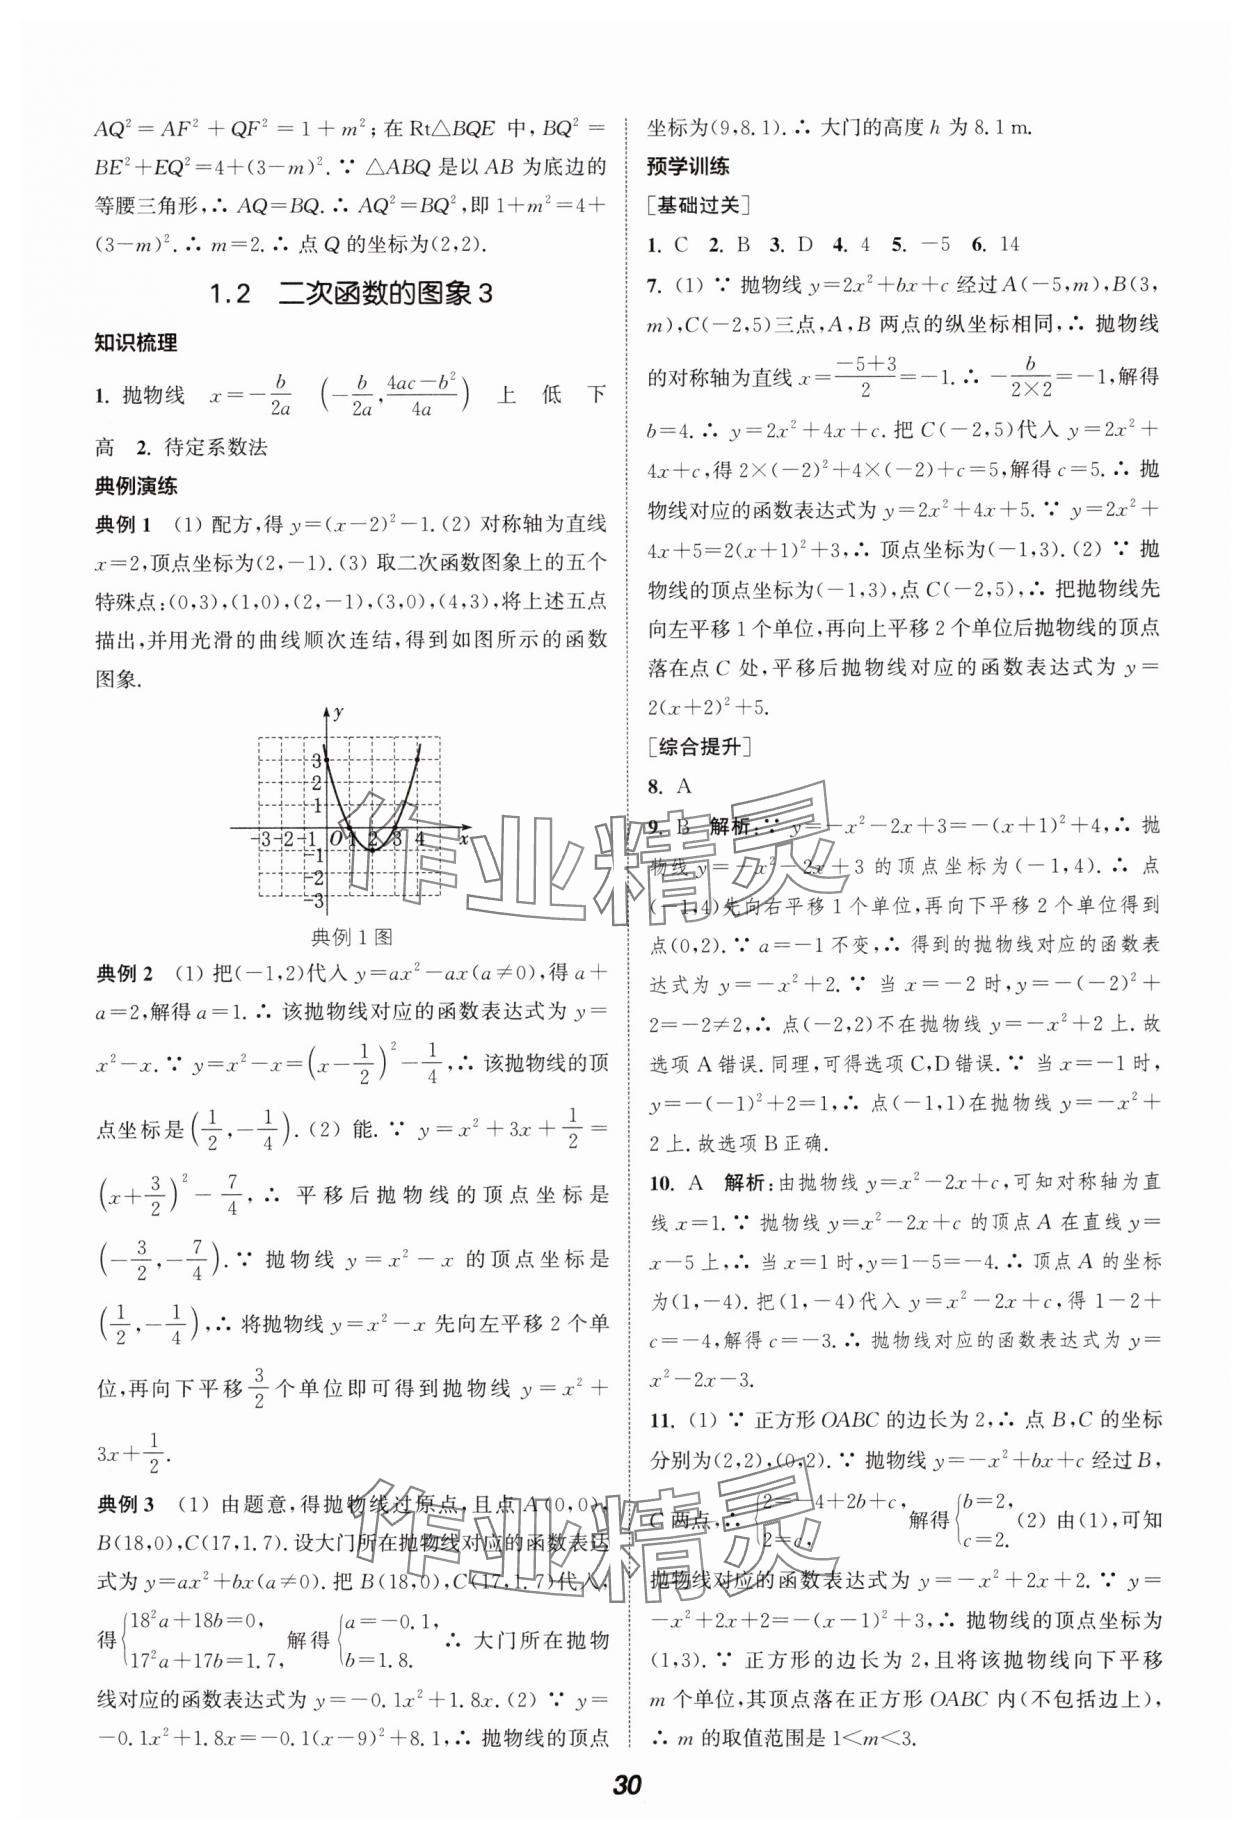 AQ²=AF²+QF²=1+m²;在Rt△BQE 中,BQ²=
BE²+EQ²=4+(3-m)².∵ △ABQ 是以 AB 为底边的
等腰三角形,∴ AQ=BQ.∴ AQ²=BQ²,即 1+m²=4+
(3-m)².∴ m=2.∴ 点 Q 的坐标为(2,2).
1.2 二次函数的图象3
知识梳理
1. 抛物线 x=-b/2a (-b/2a,(4ac-b²)/4a) 上 低 下
高 2. 待定系数法
典例演练
典例 1 (1) 配方,得 y=(x-2)²-1.(2) 对称轴为直线
x=2,顶点坐标为(2,-1).(3) 取二次函数图象上的五个
特殊点:(0,3),(1,0),(2,-1),(3,0),(4,3),将上述五点
描出,并用光滑的曲线顺次连结,得到如图所示的函数
图象.
y
3
2
1
-3 -2 -1 O 1 2 3 4 x
-1
-2
-3
典例 1 图
典例 2 (1) 把(-1,2)代入 y=ax²-ax(a≠0),得 a+
a=2,解得 a=1.∴ 该抛物线对应的函数表达式为 y=
x²-x.∵ y=x²-x=(x-1/2)²-1/4,∴ 该抛物线的顶
点坐标是(1/2,-1/4).(2) 能.∵ y=x²+3x+1/2=
(x+3/2)²-7/4,∴ 平移后抛物线的顶点坐标是
(-3/2,-7/4).∵ 抛物线 y=x²-x 的顶点坐标是
(1/2,-1/4),∴ 将抛物线 y=x²-x 先向左平移 2 个单
位,再向下平移3/2个单位即可得到抛物线 y=x²+
3x+1/2.
典例 3 (1) 由题意,得抛物线过原点,且点 A(0,0),
B(18,0),C(17,1.7).设大门所在抛物线对应的函数表达
式为 y=ax²+bx(a≠0).把 B(18,0),C(17,1.7)代入,
得{18²a+18b=0, 17²a+17b=1.7, 解得{a=-0.1, b=1.8. ∴ 大门所在抛物
线对应的函数表达式为 y=-0.1x²+1.8x.(2) ∵ y=
-0.1x²+1.8x=-0.1(x-9)²+8.1,∴ 抛物线的顶点
坐标为(9,8.1).∴ 大门的高度 h 为 8.1 m.
预学训练
[基础过关]
1. C 2. B 3. D 4. 4 5. -5 6. 14
7. (1) ∵ 抛物线 y=2x²+bx+c 经过 A(-5,m),B(3,
m),C(-2,5)三点,A,B 两点的纵坐标相同,∴ 抛物线
的对称轴为直线 x=(-5+3)/2=-1.∴ -b/(2×2)=-1,解得
b=4.∴ y=2x²+4x+c.把 C(-2,5)代入 y=2x²+
4x+c,得 2×(-2)²+4×(-2)+c=5,解得 c=5.∴ 抛
物线对应的函数表达式为 y=2x²+4x+5.∵ y=2x²+
4x+5=2(x+1)²+3,∴ 顶点坐标为(-1,3).(2) ∵ 抛
物线的顶点坐标为(-1,3),点 C(-2,5),∴ 把抛物线先
向左平移 1 个单位,再向上平移 2 个单位后抛物线的顶点
落在点 C 处,平移后抛物线对应的函数表达式为 y=
2(x+2)²+5.
[综合提升]
8. A
9. B 解析:∵ y=-x²-2x+3=-(x+1)²+4,∴ 抛
物线 y=-x²-2x+3 的顶点坐标为(-1,4).∴ 点
(-1,4)先向右平移 1 个单位,再向下平移 2 个单位得到
点(0,2).∵ a=-1 不变,∴ 得到的抛物线对应的函数表
达式为 y=-x²+2.∵ 当 x=-2 时,y=-(-2)²+
2=-2≠2,∴ 点(-2,2)不在抛物线 y=-x²+2 上.故
选项 A 错误.同理,可得选项 C,D 错误.∵ 当 x=-1 时,
y=-(-1)²+2=1,∴ 点(-1,1)在抛物线 y=-x²+
2 上.故选项 B 正确.
10. A 解析:由抛物线 y=x²-2x+c,可知对称轴为直
线 x=1.∵ 抛物线 y=x²-2x+c 的顶点 A 在直线 y=
x-5 上,∴ 当 x=1 时,y=1-5=-4.∴ 顶点 A 的坐标
为(1,-4).把(1,-4)代入 y=x²-2x+c,得 1-2+
c=-4,解得 c=-3.∴ 抛物线对应的函数表达式为 y=
x²-2x-3.
11. (1) ∵ 正方形 OABC 的边长为 2,∴ 点 B,C 的坐标
分别为(2,2),(0,2).∵ 抛物线 y=-x²+bx+c 经过 B,
C 两点,∴ {2=-4+2b+c, 2=c, 解得{b=2, c=2. (2) 由(1),可知
抛物线对应的函数表达式为 y=-x²+2x+2.∵ y=
-x²+2x+2=-(x-1)²+3,∴ 抛物线的顶点坐标为
(1,3).∵ 正方形的边长为 2,且将该抛物线向下平移
m 个单位,其顶点落在正方形 OABC 内(不包括边上),
∴ m 的取值范围是 1<m<3.
30
作业精灵
作业精灵